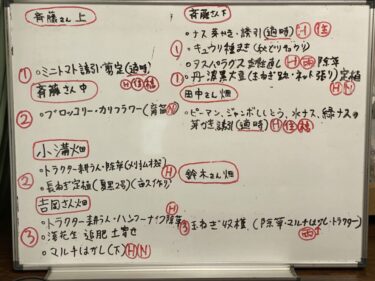 斉藤さん 上
① ○ミニトマト誘引・剪定(適時)
斉藤さん 中
② ○ブロッコリー・カリフラワー(育苗)
小溝畑
○トラクター耕うん・除草
② ○長ねぎ定植
吉岡さん畑
○トラクター耕うん・ハンマーナイフ除草 H
③ ○落花生 追肥 土寄せ
○マルチはがし(下) H N
斉藤さん 下
○ナス芽かき・誘引(適時) H 佳
① ○キュウリ種まき
○アスパラガス 除草
① ○丹波黒大豆(玉ねぎ跡・ネット張り)定植
H N
田中さん畑
○ピーマン、ジャンボししとう、水ナス、緑ナスの
芽かき誘引(適時)H
鈴木さん畑
③ 玉ねぎ収穫(除草・マルチはがし・トラクター)
西